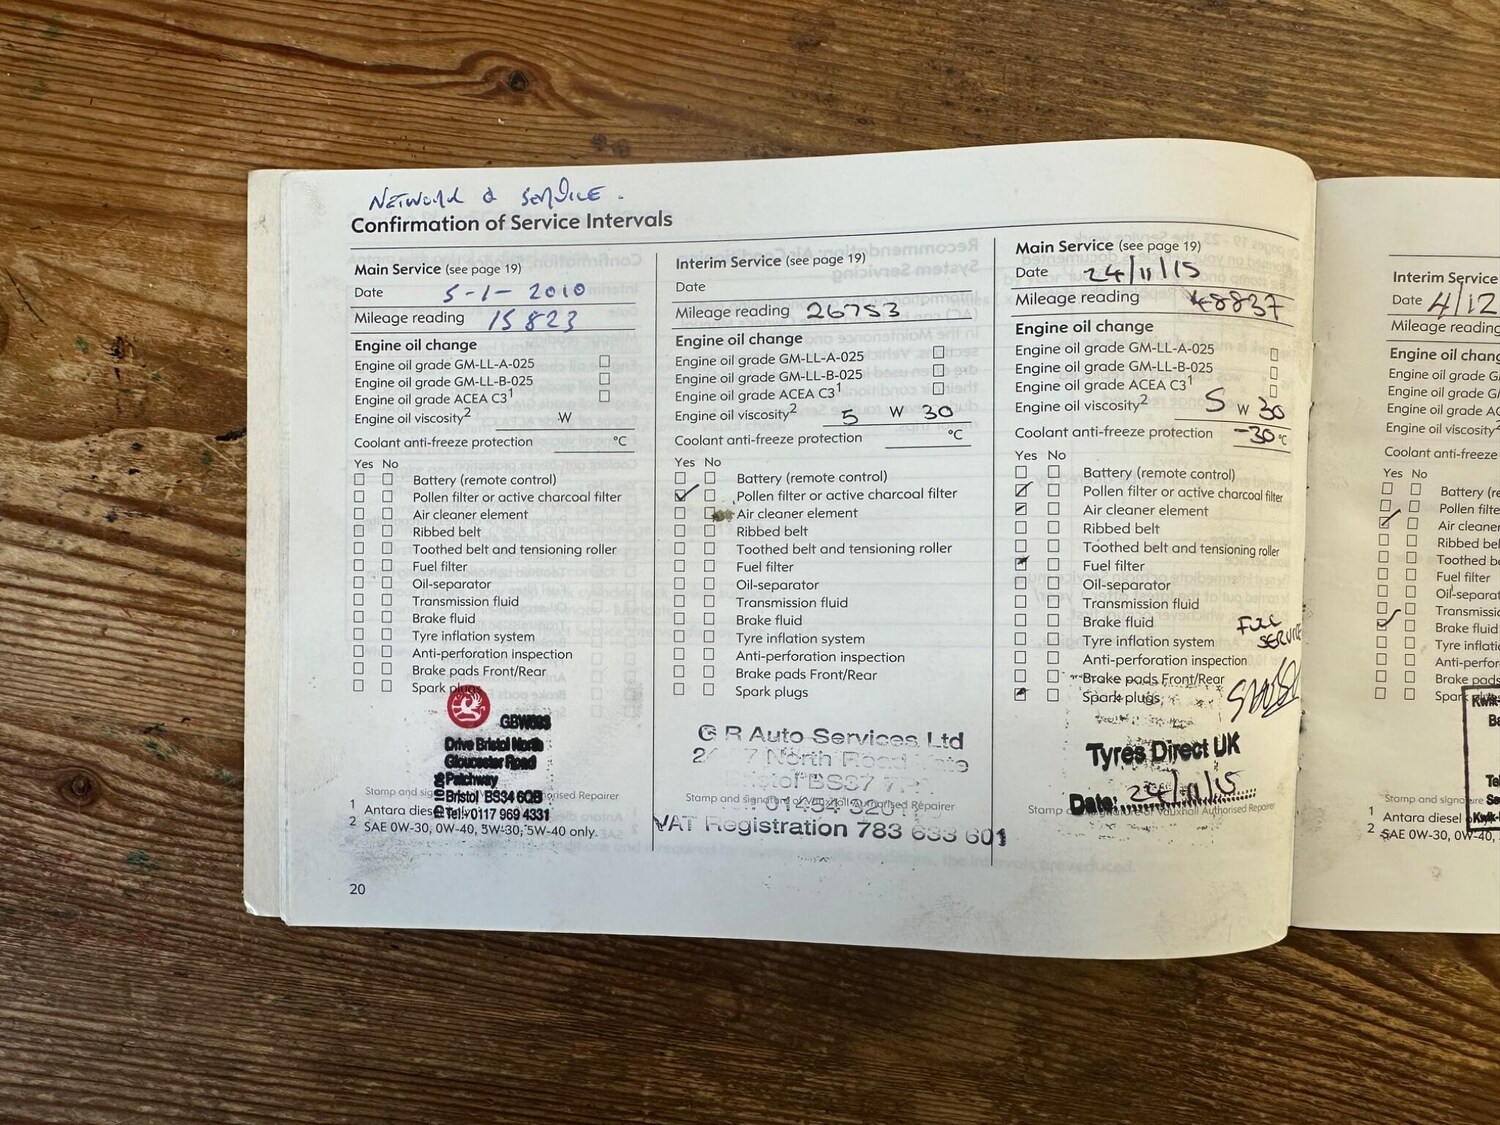 NETWORK Q SERVICE.
Confirmation of Service Intervals
Main Service (see page 19)
Date 5-1-2010
Mileage reading 15823
Engine oil change
Engine oil grade GM-LL-A-025
Engine oil grade GM-LL-B-025
Engine oil grade ACEA C3¹
Engine oil viscosity² W
Coolant anti-freeze protection °C
Yes No
Battery (remote control)
Pollen filter or active charcoal filter
Air cleaner element
Ribbed belt
Toothed belt and tensioning roller
Fuel filter
Oil-separator
Transmission fluid
Brake fluid
Tyre inflation system
Anti-perforation inspection
Brake pads Front/Rear
Spark plugs
Drive Bristol North
Gloucester Road
Patchway
Bristol BS34 6QB
Tel: 0117 969 4331
Stamp and orised Repairer
1 Antara dies
2 SAE 0W-30, 0W-40, 5W-30, 5W-40 only.
20
Interim Service (see page 19)
Date
Mileage reading 26753
Engine oil change
Engine oil grade GM-LL-A-025
Engine oil grade GM-LL-B-025
Engine oil grade ACEA C3¹
Engine oil viscosity² 5 W 30
Coolant anti-freeze protection °C
Yes No
Battery (remote control)
Pollen filter or active charcoal filter
Air cleaner element
Ribbed belt
Toothed belt and tensioning roller
Fuel filter
Oil-separator
Transmission fluid
Brake fluid
Tyre inflation system
Anti-perforation inspection
Brake pads Front/Rear
Spark plugs
G R Auto Services Ltd
North Road
BS37
Stamp and signature of Vauxhall Authorised Repairer
VAT Registration 783 633 601
Main Service (see page 19)
Date 24/11/15
Mileage reading 48837
Engine oil change
Engine oil grade GM-LL-A-025
Engine oil grade GM-LL-B-025
Engine oil grade ACEA C3¹
Engine oil viscosity² 5 W 30
Coolant anti-freeze protection -30°C
Yes No
Battery (remote control)
Pollen filter or active charcoal filter
Air cleaner element
Ribbed belt
Toothed belt and tensioning roller
Fuel filter
Oil-separator
Transmission fluid
Brake fluid
Tyre inflation system
Anti-perforation inspection
Brake pads Front/Rear
Spark plugs
FULL
SERVICE
Tyres Direct UK
Date: 24/11/15
Stamp and signature of Vauxhall Authorised Repairer
Interim Service
Date 4/12
Mileage reading
Engine oil chang
Engine oil grade G
Engine oil grade G
Engine oil grade AC
Engine oil viscosity²
Coolant anti-freeze
Yes No
Battery (re
Pollen filte
Air cleaner
Ribbed bel
Toothed be
Fuel filter
Oil-separat
Transmissio
Brake fluid
Tyre inflatio
Anti-perfor
Brake pads
Spark
Kwik-
Ba
Te
Se
Kwik-
Stamp and signature
1 Antara diesel
2 SAE 0W-30, 0W-40,